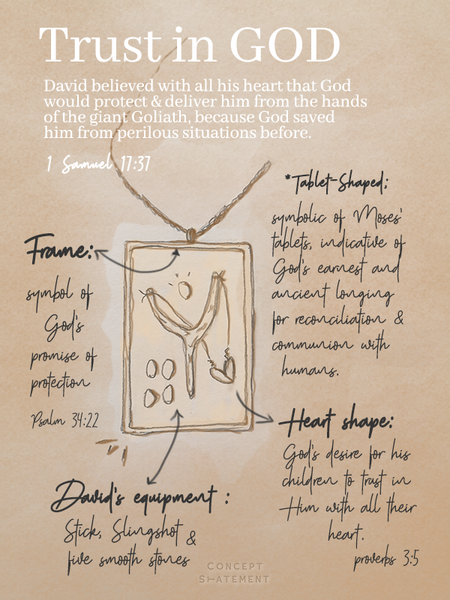 Trust in GOD
David believed with all his heart that God
would protect & deliver him from the hands
of the giant Goliath, because God saved
him from perilous situations before.
1 Samuel 17:37
*Tablet-Shaped:
symbolic of Moses'
tablets, indicative of
God's earnest and
ancient longing
for reconciliation &
communion with
humans.
Frame:
symbol of
God's
promise of
protection
Psalm 34:22
Heart shape:
God's desire for his
children to trust in
Him with all their
heart.
proverbs 3:5
David's equipment :
Stick, Slingshot &
five smooth stones
CONCEPT
STATEMENT